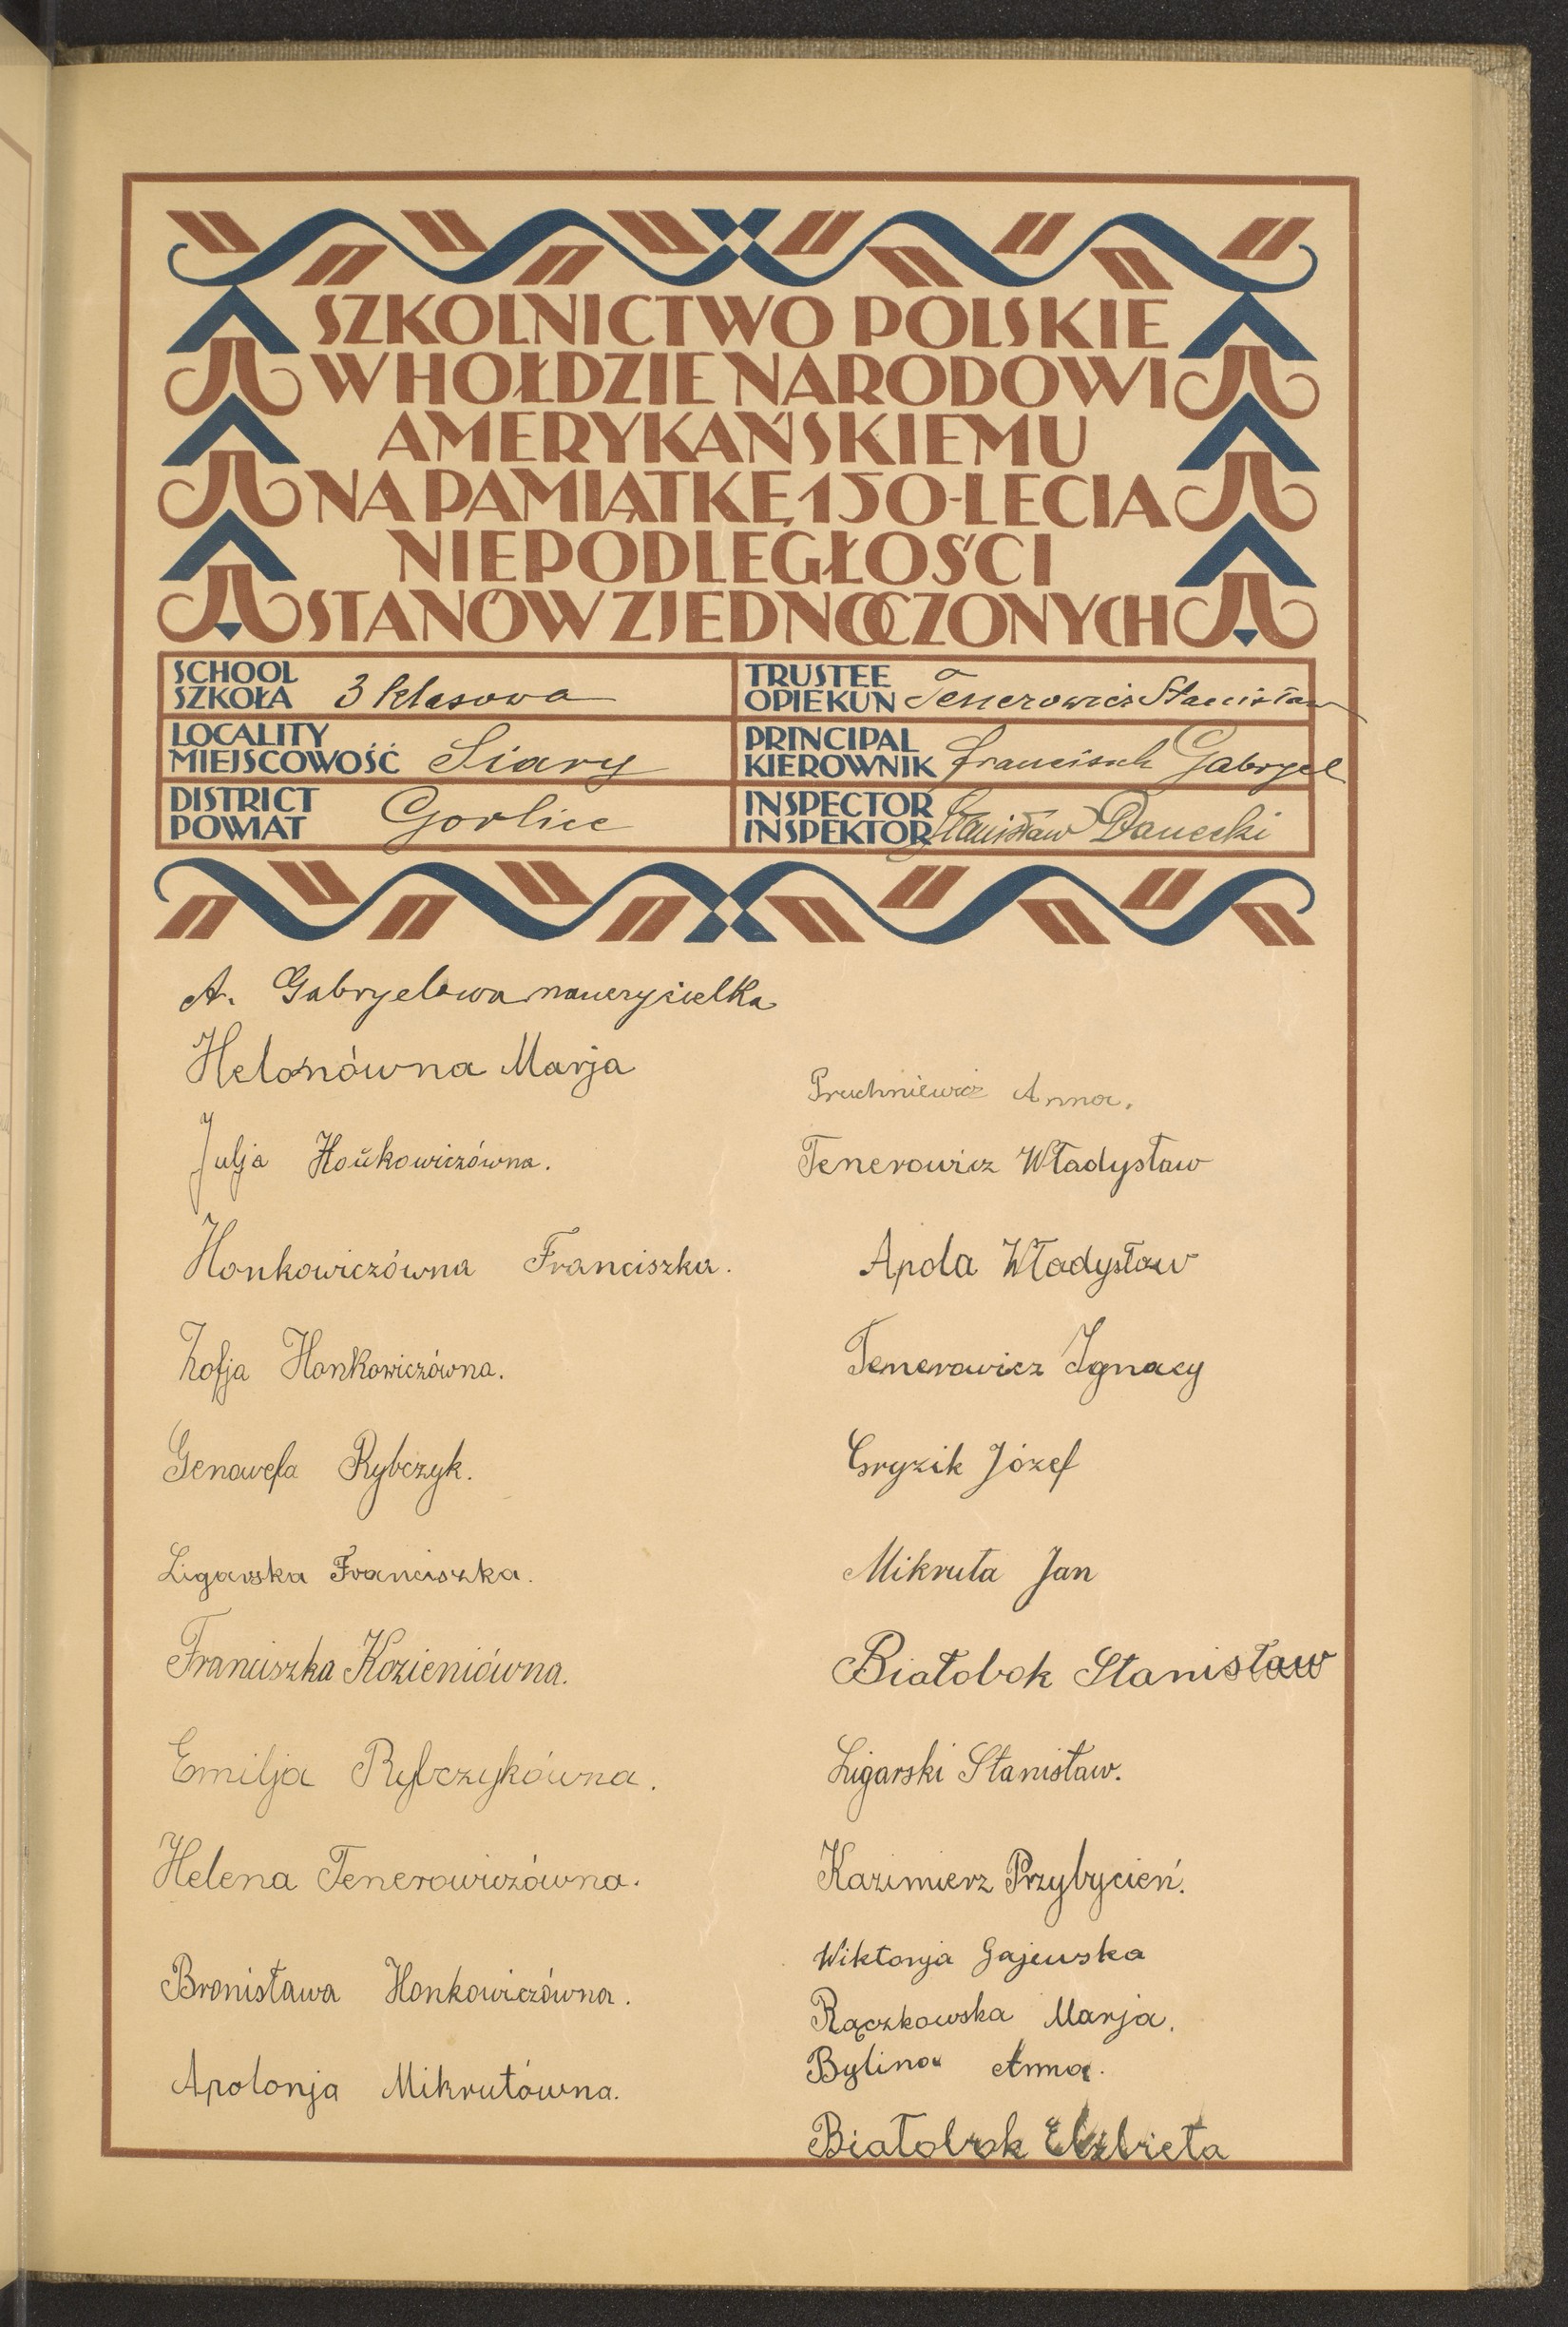 SZKOLNICTWO POLSKIE
W HOŁDZIE NARODOWI
AMERYKAŃSKIEMU
NA PAMIĄTKĘ 150-LECIA
NIEPODLEGŁOŚCI
STANÓW ZJEDNOCZONYCH
SCHOOL
SZKOŁA 3 klasowa
TRUSTEE
OPIEKUN Tenerowicz Stanisław
LOCALITY
MIEJSCOWOŚĆ Siary
PRINCIPAL
KIEROWNIK Franciszek Gabryel
DISTRICT
POWIAT Gorlice
INSPECTOR
INSPEKTOR Stanisław Danecki
A. Gabryelowa nauczycielka
Helonówna Marja
Julja Hońkowiczówna.
Honkowiczówna Franciszka.
Zofja Honkowiczówna.
Genowefa Rybczyk.
Ligarska Franciszka.
Franciszka Kozieniówna.
Emilja Rybczykówna.
Helena Tenerowiczówna.
Bronisława Honkowiczówna.
Apolonja Mikrutówna.
Pruchniewicz Anna.
Tenerowicz Władysław
Apola Władysław
Tenerowicz Ignacy
Gryzik Józef
Mikruta Jan
Białobok Stanisław
Ligarski Stanisław.
Kazimierz Przybycień.
Wiktorja Gajewska
Rączkowska Marja.
Bylina Anna.
Białobok Elzbieta